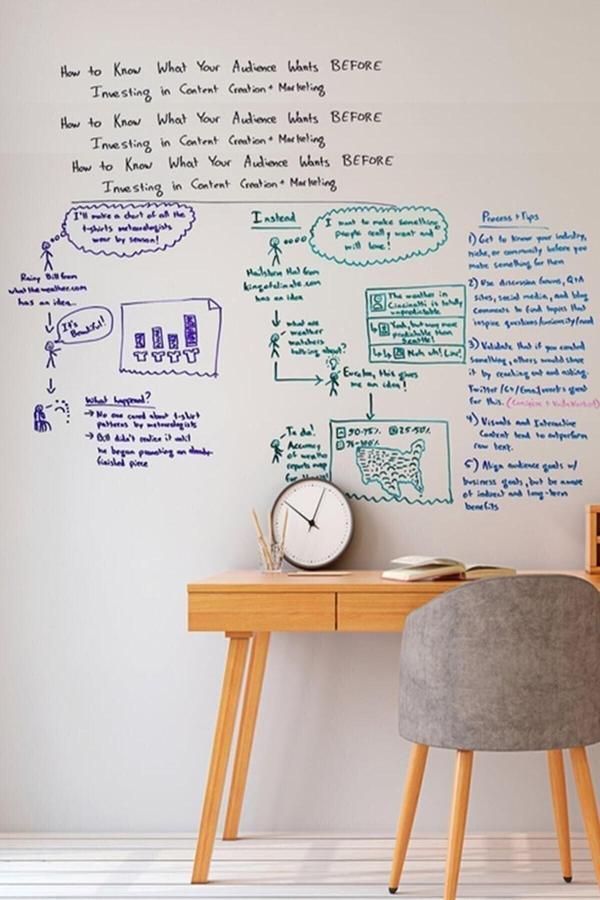 How to Know What Your Audience Wants BEFORE
Investing in Content Creation + Marketing
How to Know What Your Audience Wants BEFORE
Investing in Content Creation + Marketing
How to Know What Your Audience Wants BEFORE
Investing in Content Creation + Marketing
I'll make a chart of all the
t-shirts meteorologists
wear by season!
Rainy Bill from
whattheweather.com
has an idea...
It's
Beautiful!
What happened?
→ No one cared about t-shirt
patterns by meteorologists
→ Bill didn't realize it until
he began promoting an already-
finished piece
Instead
I want to make something
people really want and
will love!
Hailstorm Hal from
kingofclimate.com
has an idea
what are
weather
watchers
talking about?
The weather in
Cincinnati is totally
unpredictable
Yeah, but way more
predictable than
Seattle!
Nuh uh! Liar!
Eureka, this gives
me an idea!
Ta da!
Accuracy
of weather
reports map
50-75%
25-50%
76-100%
Process + Tips
1) Get to know your industry,
niche, or community before you
make something for them
2) Use discussion forums, Q+A
sites, social media, and blog
comments to find topics that
inspire questions/curiosity/need
3) Validate that if you created
something, others would share
it by reaching out and asking.
Twitter/G+/Email work great
for this.
4) Visuals and Interactive
Content tend to outperform
raw text.
5) Align audience goals w/
business goals, but be aware
of indirect and long-term
benefits